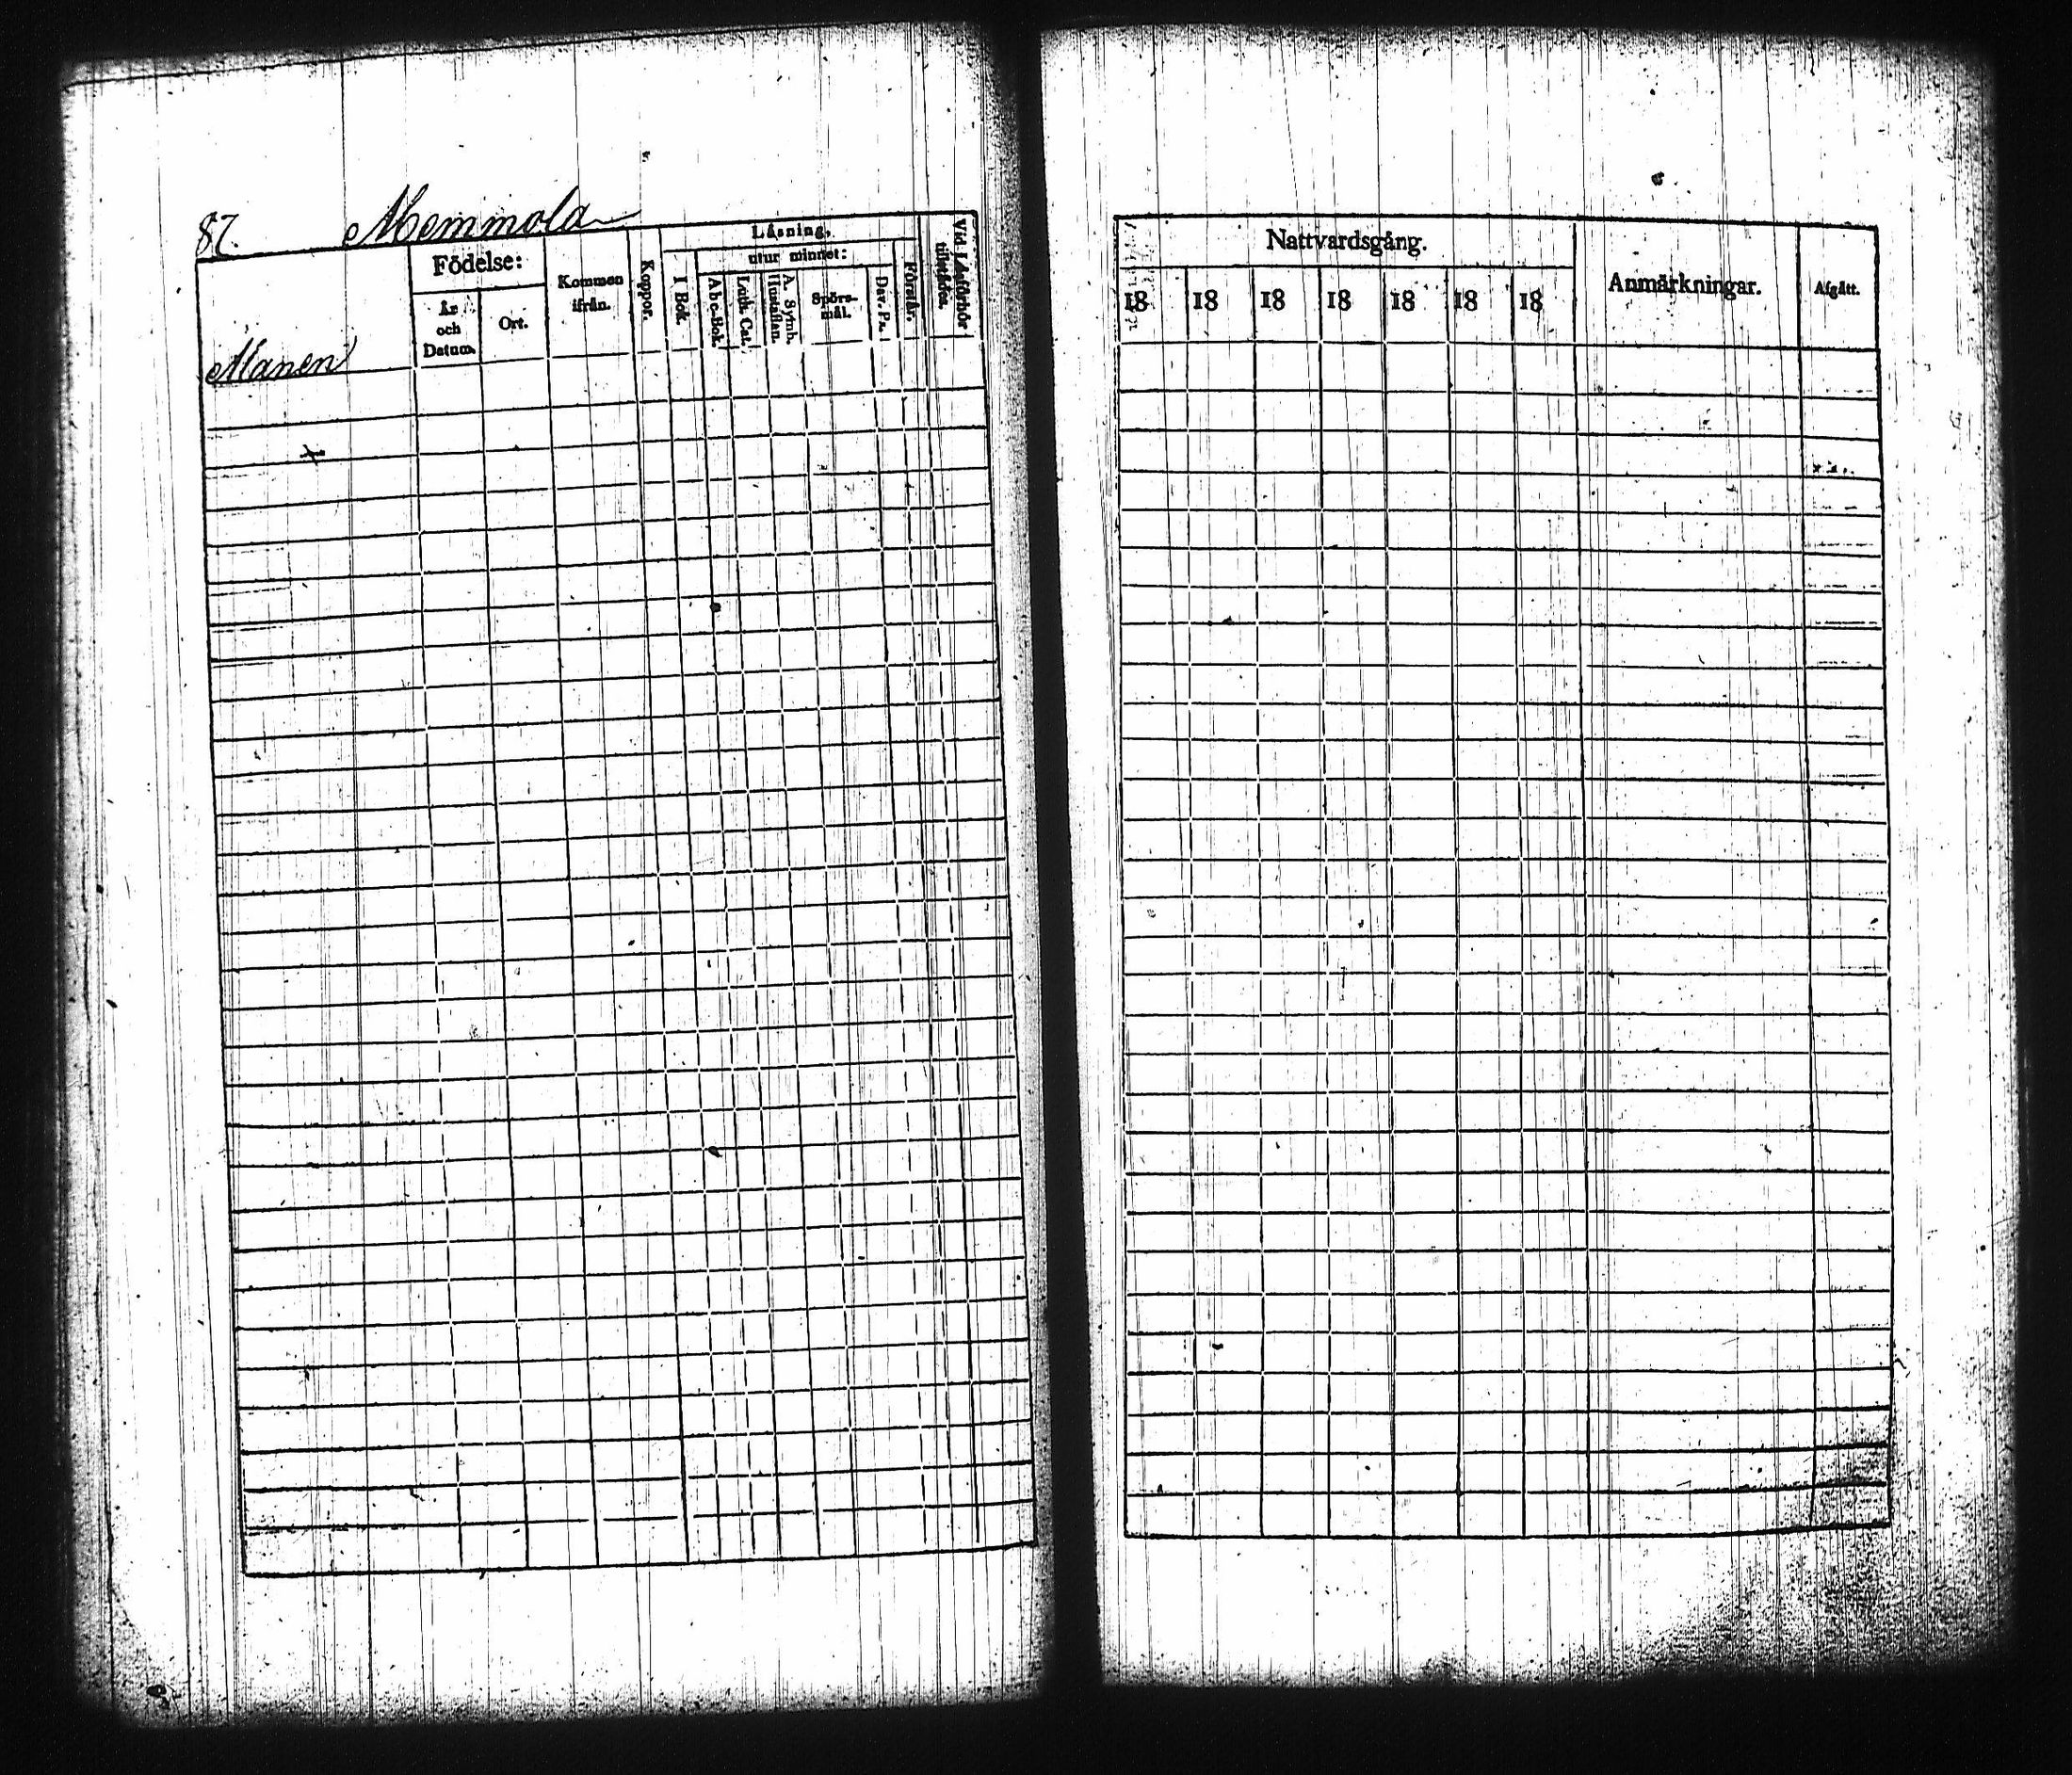 87. Memmola
Födelse:
År och Datum.
Ort.
Kommen ifrån.
Koppor.
Läsning,
utur minnet:
I Bok.
Abc-Bok.
Luth. Cat.
A. Symb. Hustaflan.
Spörs-mål.
Dav. Ps.
Förstår.
Vid Läsförhör tillstädes.
Manen
Nattvardsgång.
18 18 18 18 18 18 18
Anmärkningar.
Afgått.